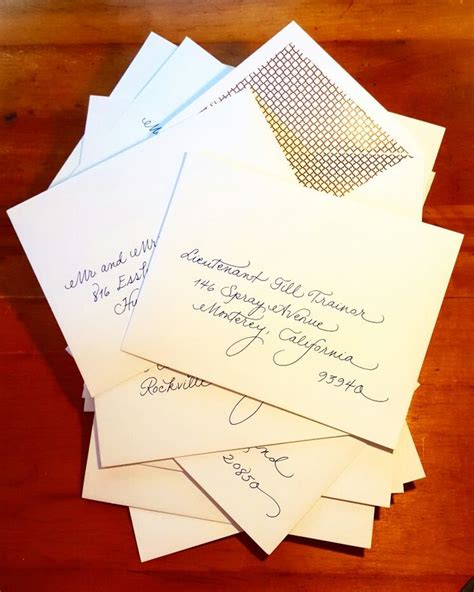 Lieutenant Jill Trainor
146 Spray Avenue
Monterey, California
93940
Mr and Mr
816 Ess
Rockville
20850